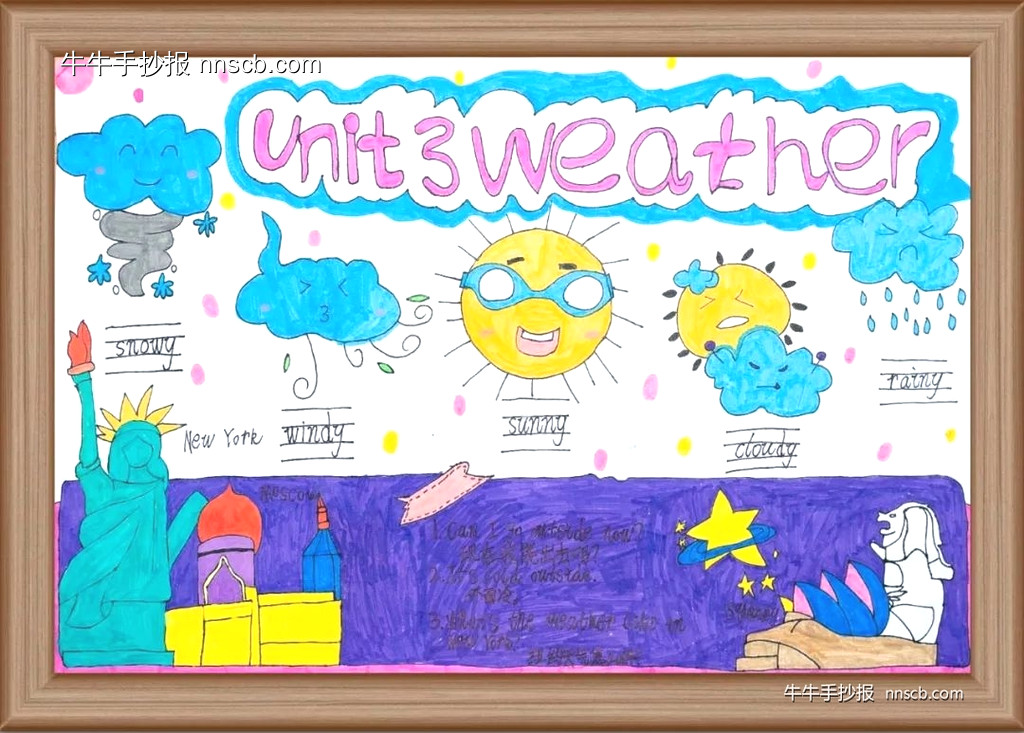 牛牛手抄报 nnscb.com
unit 3 weather
snowy
New York
windy
sunny
cloudy
rainy
Moscow
1. Can I go outside now?
现在我能出去吗?
2. It's cold outside.
外面冷。
3. What's the weather like in
New York.
牛牛手抄报 nnscb.com